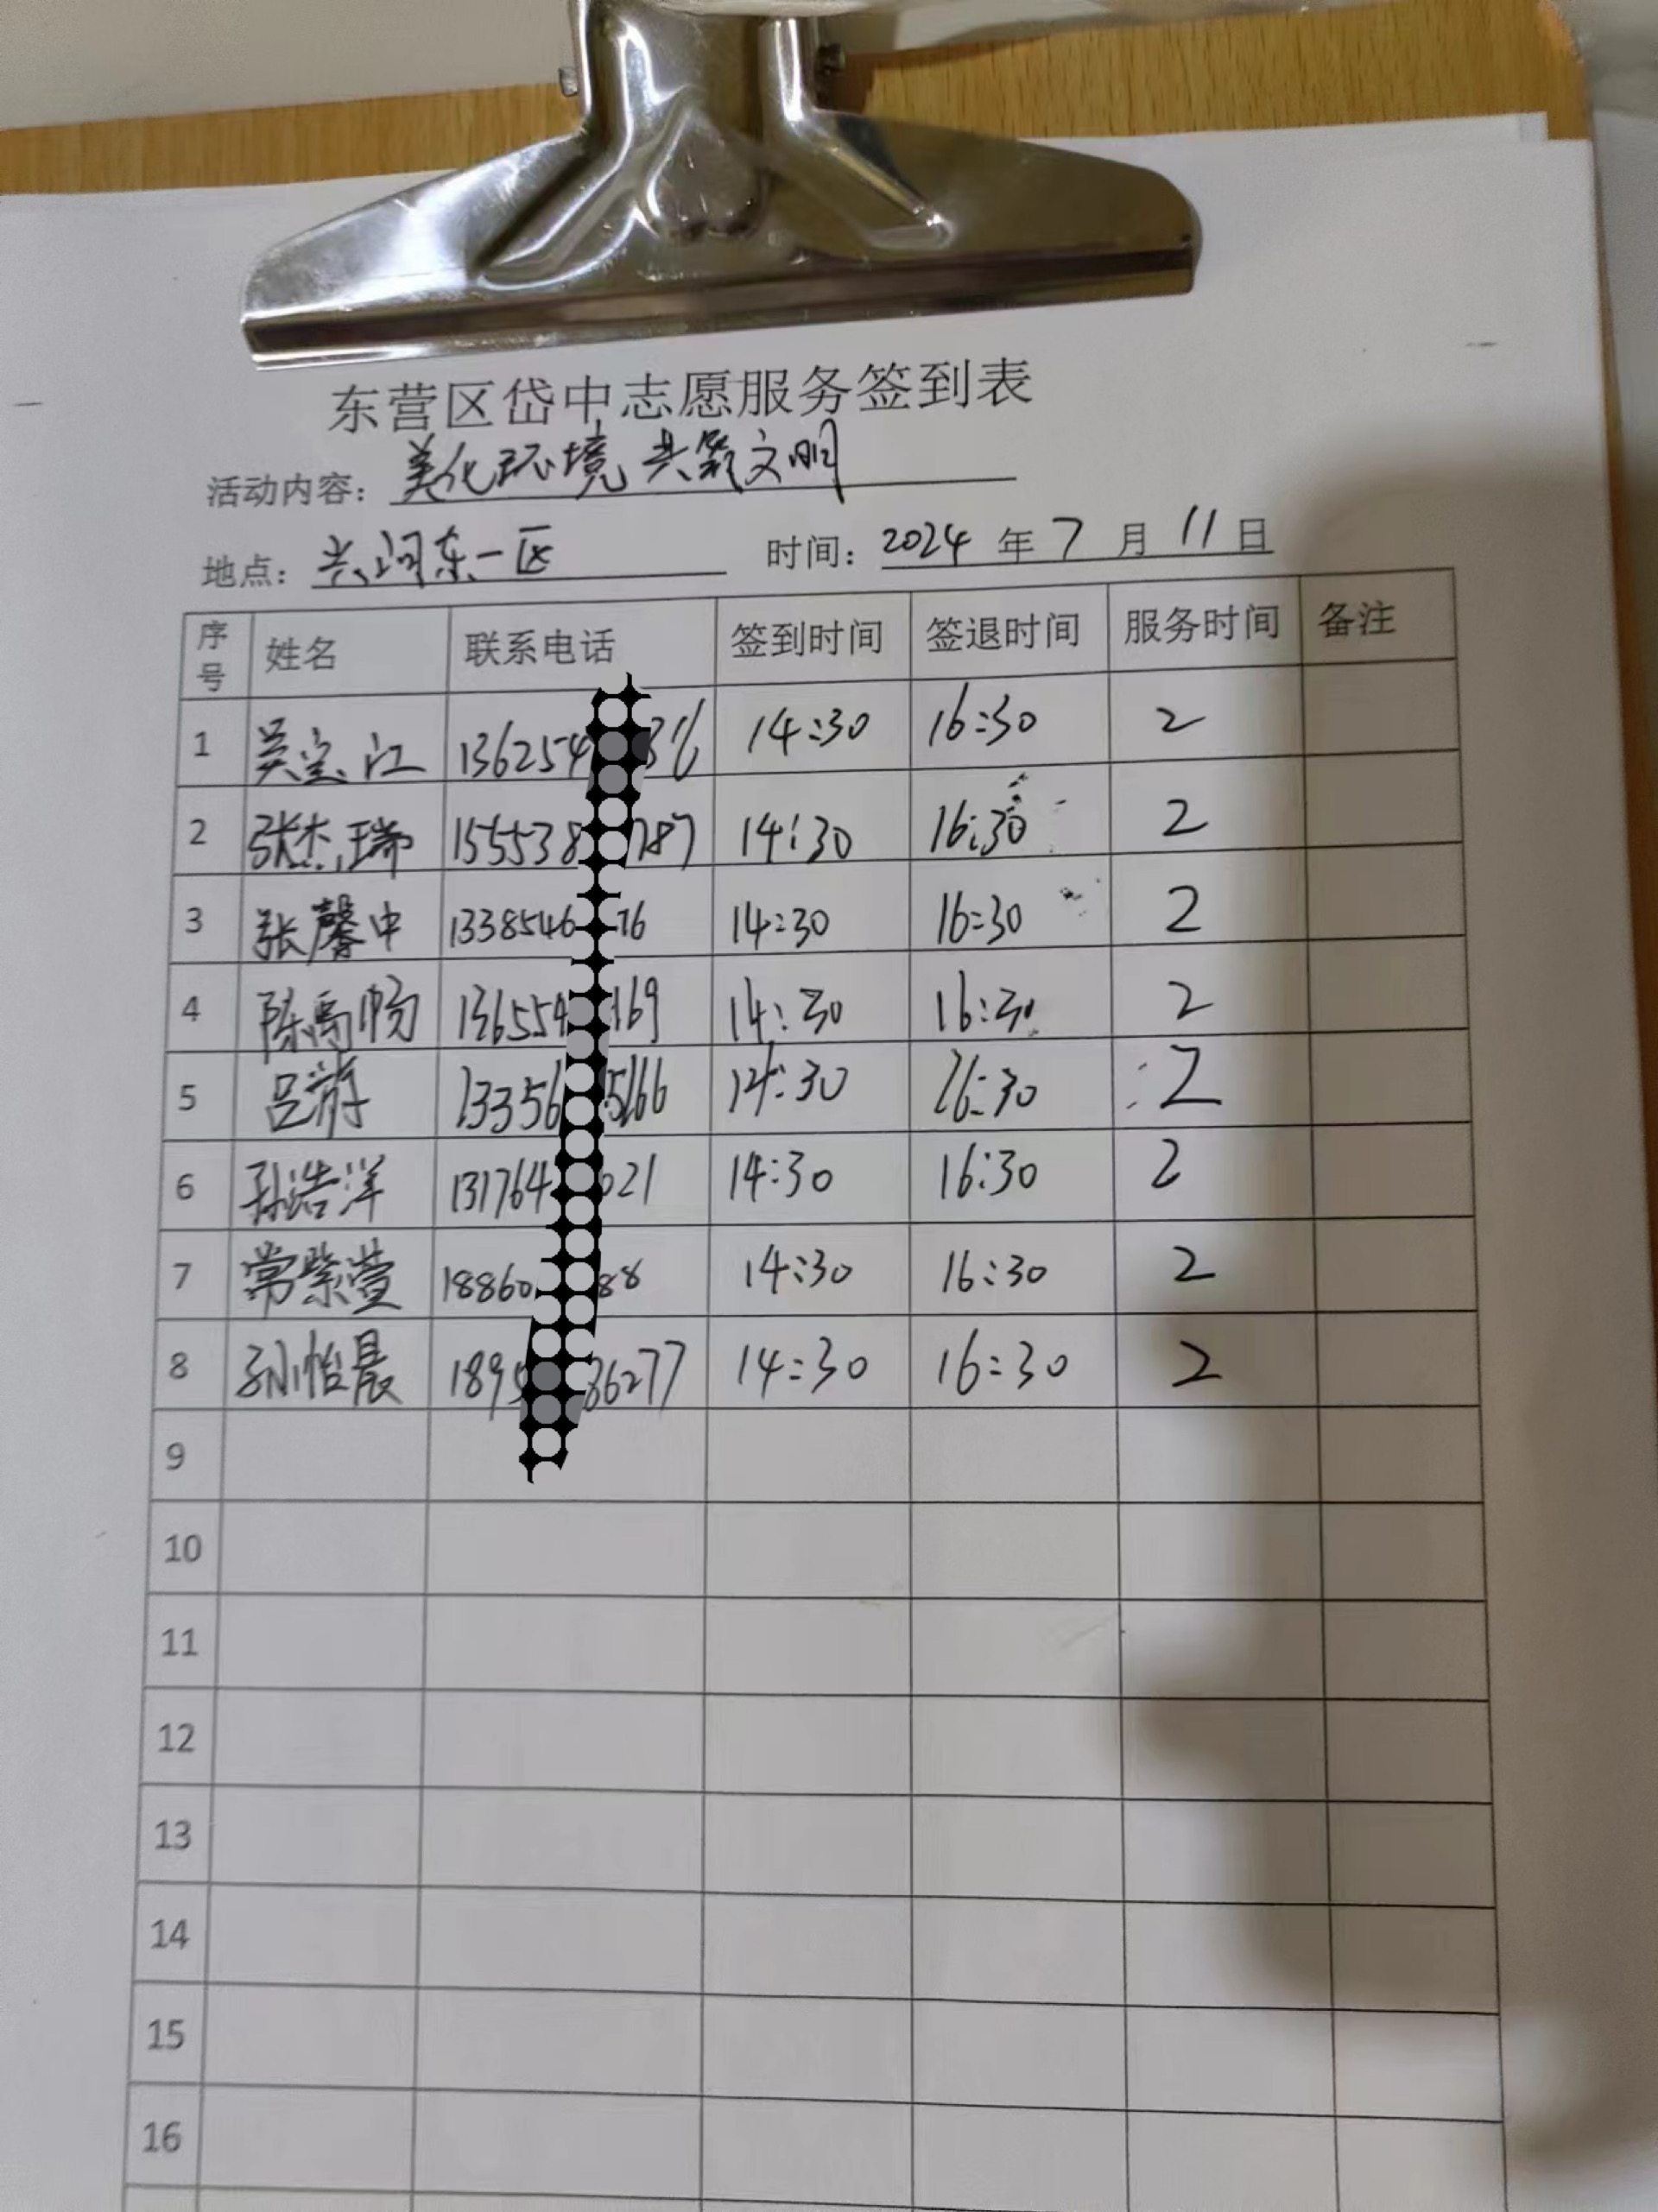 东营区岱中志愿服务签到表
活动内容: 美化环境 共筑文明
地点: 兴河东一区 时间: 2024 年 7 月 11 日
序号 姓名 联系电话 签到时间 签退时间 服务时间 备注
1 吴宝江 136254 14:30 16:30 2
2 张杰瑞 155538 787 14:30 16:30 2
3 张馨中 1338546 76 14:30 16:30 2
4 陈禹畅 136554 169 14:30 16:30 2
5 吕游 13356 5166 14:30 16:30 2
6 孙浩洋 131764 021 14:30 16:30 2
7 常紫萱 18860 88 14:30 16:30 2
8 孙怡晨 1895 86277 14:30 16:30 2
9
10
11
12
13
14
15
16